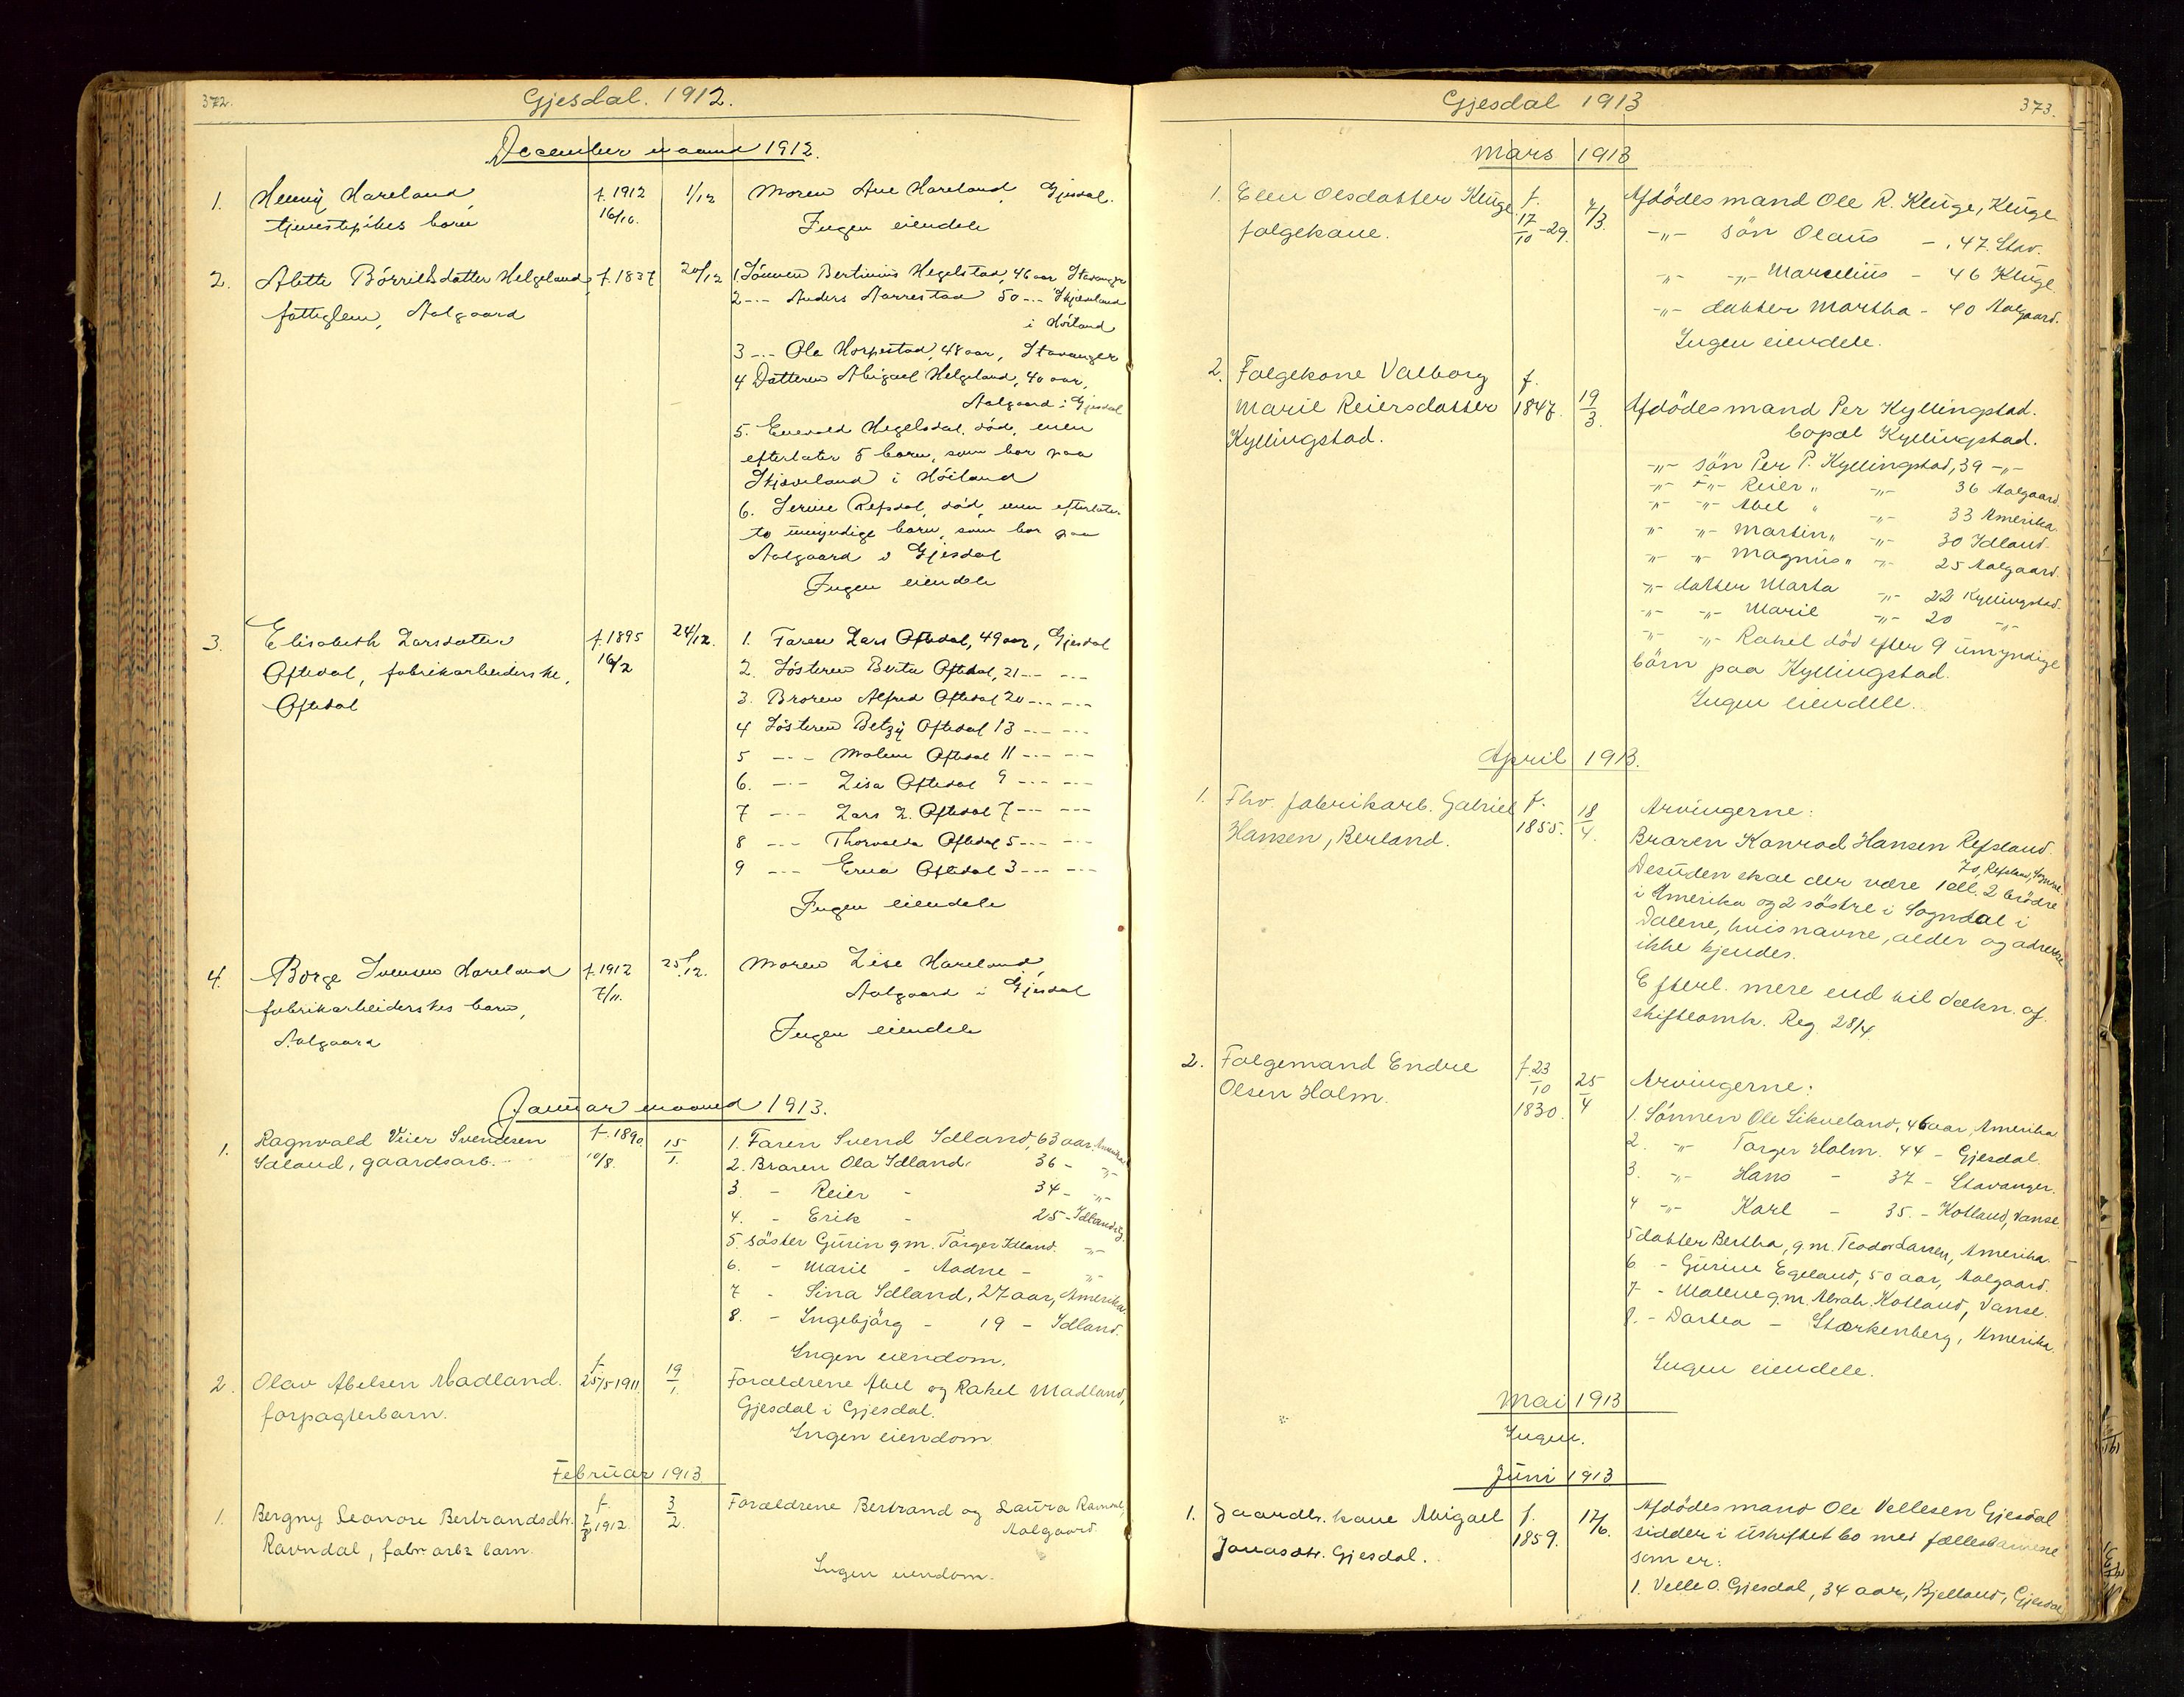 372.
Gjesdal. 1912.
December maaned 1912.
1. Henny Hareland, f. 1912 1/12 Moren Ane Hareland, Gjesdal.
tjenestepikes barn 16/10. Ingen eiendele
2. Alette Börrildsdatter Helgeland f. 1837 20/12 1. Sönnen Bertinius Hegelstad, 46 aar Stavanger
fattiglem, Aalgaard 2 -"- Anders Aarrestad 50 -"- Skjæveland
i Höiland
3 -"- Ole Horpestad, 48 aar, Stavanger
4 Datteren Abigael Helgeland, 40 aar,
Aalgaard i Gjesdal
5. Enevald Hegelsdal, död, men
efterlater 5 barn, som bor paa
Skjæveland i Höiland
6. Serine Refsdal, död, men efterlater
to umyndige barn, som bor paa
Aalgaard i Gjesdal
Ingen eiendele
3. Elisabeth Larsdatter f. 1895 24/12. 1. Faren Lars Oftedal, 49 aar, Gjesdal
Oftedal, fabrikarbeiderske, 16/2 2. Sösteren Berta Oftedal, 21 -"- -"-
Oftedal 3. Broren Alfred Oftedal 20 -"- -"-
4 Sösteren Betzy Oftedal 13 -"- -"-
5 -"- Malene Oftedal 11 -"- -"-
6. -"- Lisa Oftedal 9 -"- -"-
7 -"- Lars L. Oftedal 7 -"- -"-
8 -"- Thorvalda Oftedal 5 -"- -"-
9 -"- Erna Oftedal 3 -"- -"-
Ingen eiendele
4. Borge Svensen Hareland f. 1912 25/12. Moren Lise Hareland,
fabrikarbeiderskes barn, 7/11. Aalgaard i Gjesdal
Aalgaard Ingen eiendele
Januar maaned 1913.
1. Ragnvald Veier Svendsen f. 1890. 15/1. 1. Faren Svend Idland, 63 aar, Amerika
Idland, gaardsarb. 10/8. 2. Broren Ola Idland, 36 - -"-
3. - Reier - 34 - -"-
4. - Erik - 25 - Idland
5. söster Gurin g.m. Törger Idland. -"-
6. - Marie - Aadne - -"-
7 - Sina Idland, 27 aar, Amerika.
8. - Ingebjörg - 19 - Idland.
Ingen eiendom.
2. Olav Abelsen Madland. f. 25/5 1911. 19/1. Forældrene Abel og Rakel Madland,
forpagterbarn. Gjesdal i Gjesdal.
Ingen eiendom.
Februar 1913.
1. Bergny Leonore Bertrandsdtr. f. 2/8 1912. 3/2. Forældrene Bertrand og Laura Ravndal,
Ravndal, fabr arb's barn. Aalgaard.
Ingen eiendom.
Gjesdal 1913
373.
Mars 1913
1. Elen Olsdatter Kluge f. 17/10-29. 7/3. Afdödes mand Ole R. Kluge, Kluge
folgekone. -"- sön Olaus - . 47. Stav.
-"- -"- Marcelius - 46 Kluge.
-"- datter Martha - 40 Aalgaard.
Ingen eiendele.
2. Folgekone Valborg f.
Marie Reiersdatter 1847. 19/3. Afdödes mand Per Kyllingstad.
Kyllingstad. bopæl Kyllingstad.
-"- sön Per P. Kyllingstad, 39 -"-
-"- -"- Reier " -"- 36 Aalgaard.
-"- -"- Abel " -"- 33 Amerika.
-"- -"- Martin " -"- 30 Idland.
-"- -"- Magnus " -"- 25 Aalgaard.
-"- datter Marta -"- 22 Kyllingstad.
-"- -"- Marie -"- 20 -"-
-"- -"- Rakel död efter 9 umyndige
börn paa Kyllingstad.
Ingen eiendele.
April 1913.
1. Fhv. fabrikarb. Gabriel f. 18/4. Arvingerne:
Hansen, Berland. 1855. Broren Konrad Hansen Refsland.
70, Refsland, Sogndal.
Desuden skal der være 1 ell. 2 brödre
i Amerika og 2 söstre i Sogndal i
Dalene, hvis navne, alder og adresse
ikke kjendes.
Efterl. mere end til dækn. af
skifteomk. Reg. 28/4.
2. Folgemand Endre f. 23/10 25/4 Arvingerne:
Olsen Holm. 1830. 1. Sönnen Ole Sikveland, 46 aar, Amerika
2. -"- Torger Holm. 44 - Gjesdal.
3. -"- Hans - 37 - Stavanger.
4 -"- Karl - 35. - Kotland, Vanse.
5 datter Bertha, g.m. Teodor Larsen, Amerika.
6 - Gurine Egeland, 50 aar, Aalgaard.
7 - Malene g.m. Abrah. Kotland, Vanse.
8. - Dortea - Storkenberg, Amerika.
Ingen eiendele.
Mai 1913
Ingen.
Juni 1913
1. Gaardbr. kone Abigael f. 17/6. Afdödes mand Ole Vellesen Gjesdal
Jonasdtr. Gjesdal. 1859. sidder i uskiftet bo med fællesbarnene
som er:
1. Velle O. Gjesdal, 34 aar, Bjelland, Gjesdal